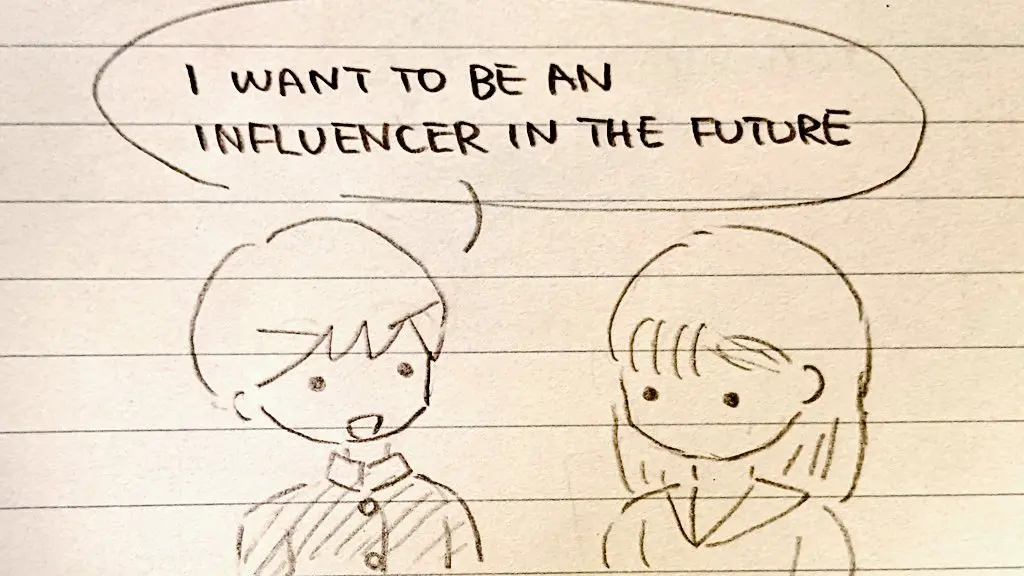 I WANT TO BE AN
INFLUENCER IN THE FUTURE